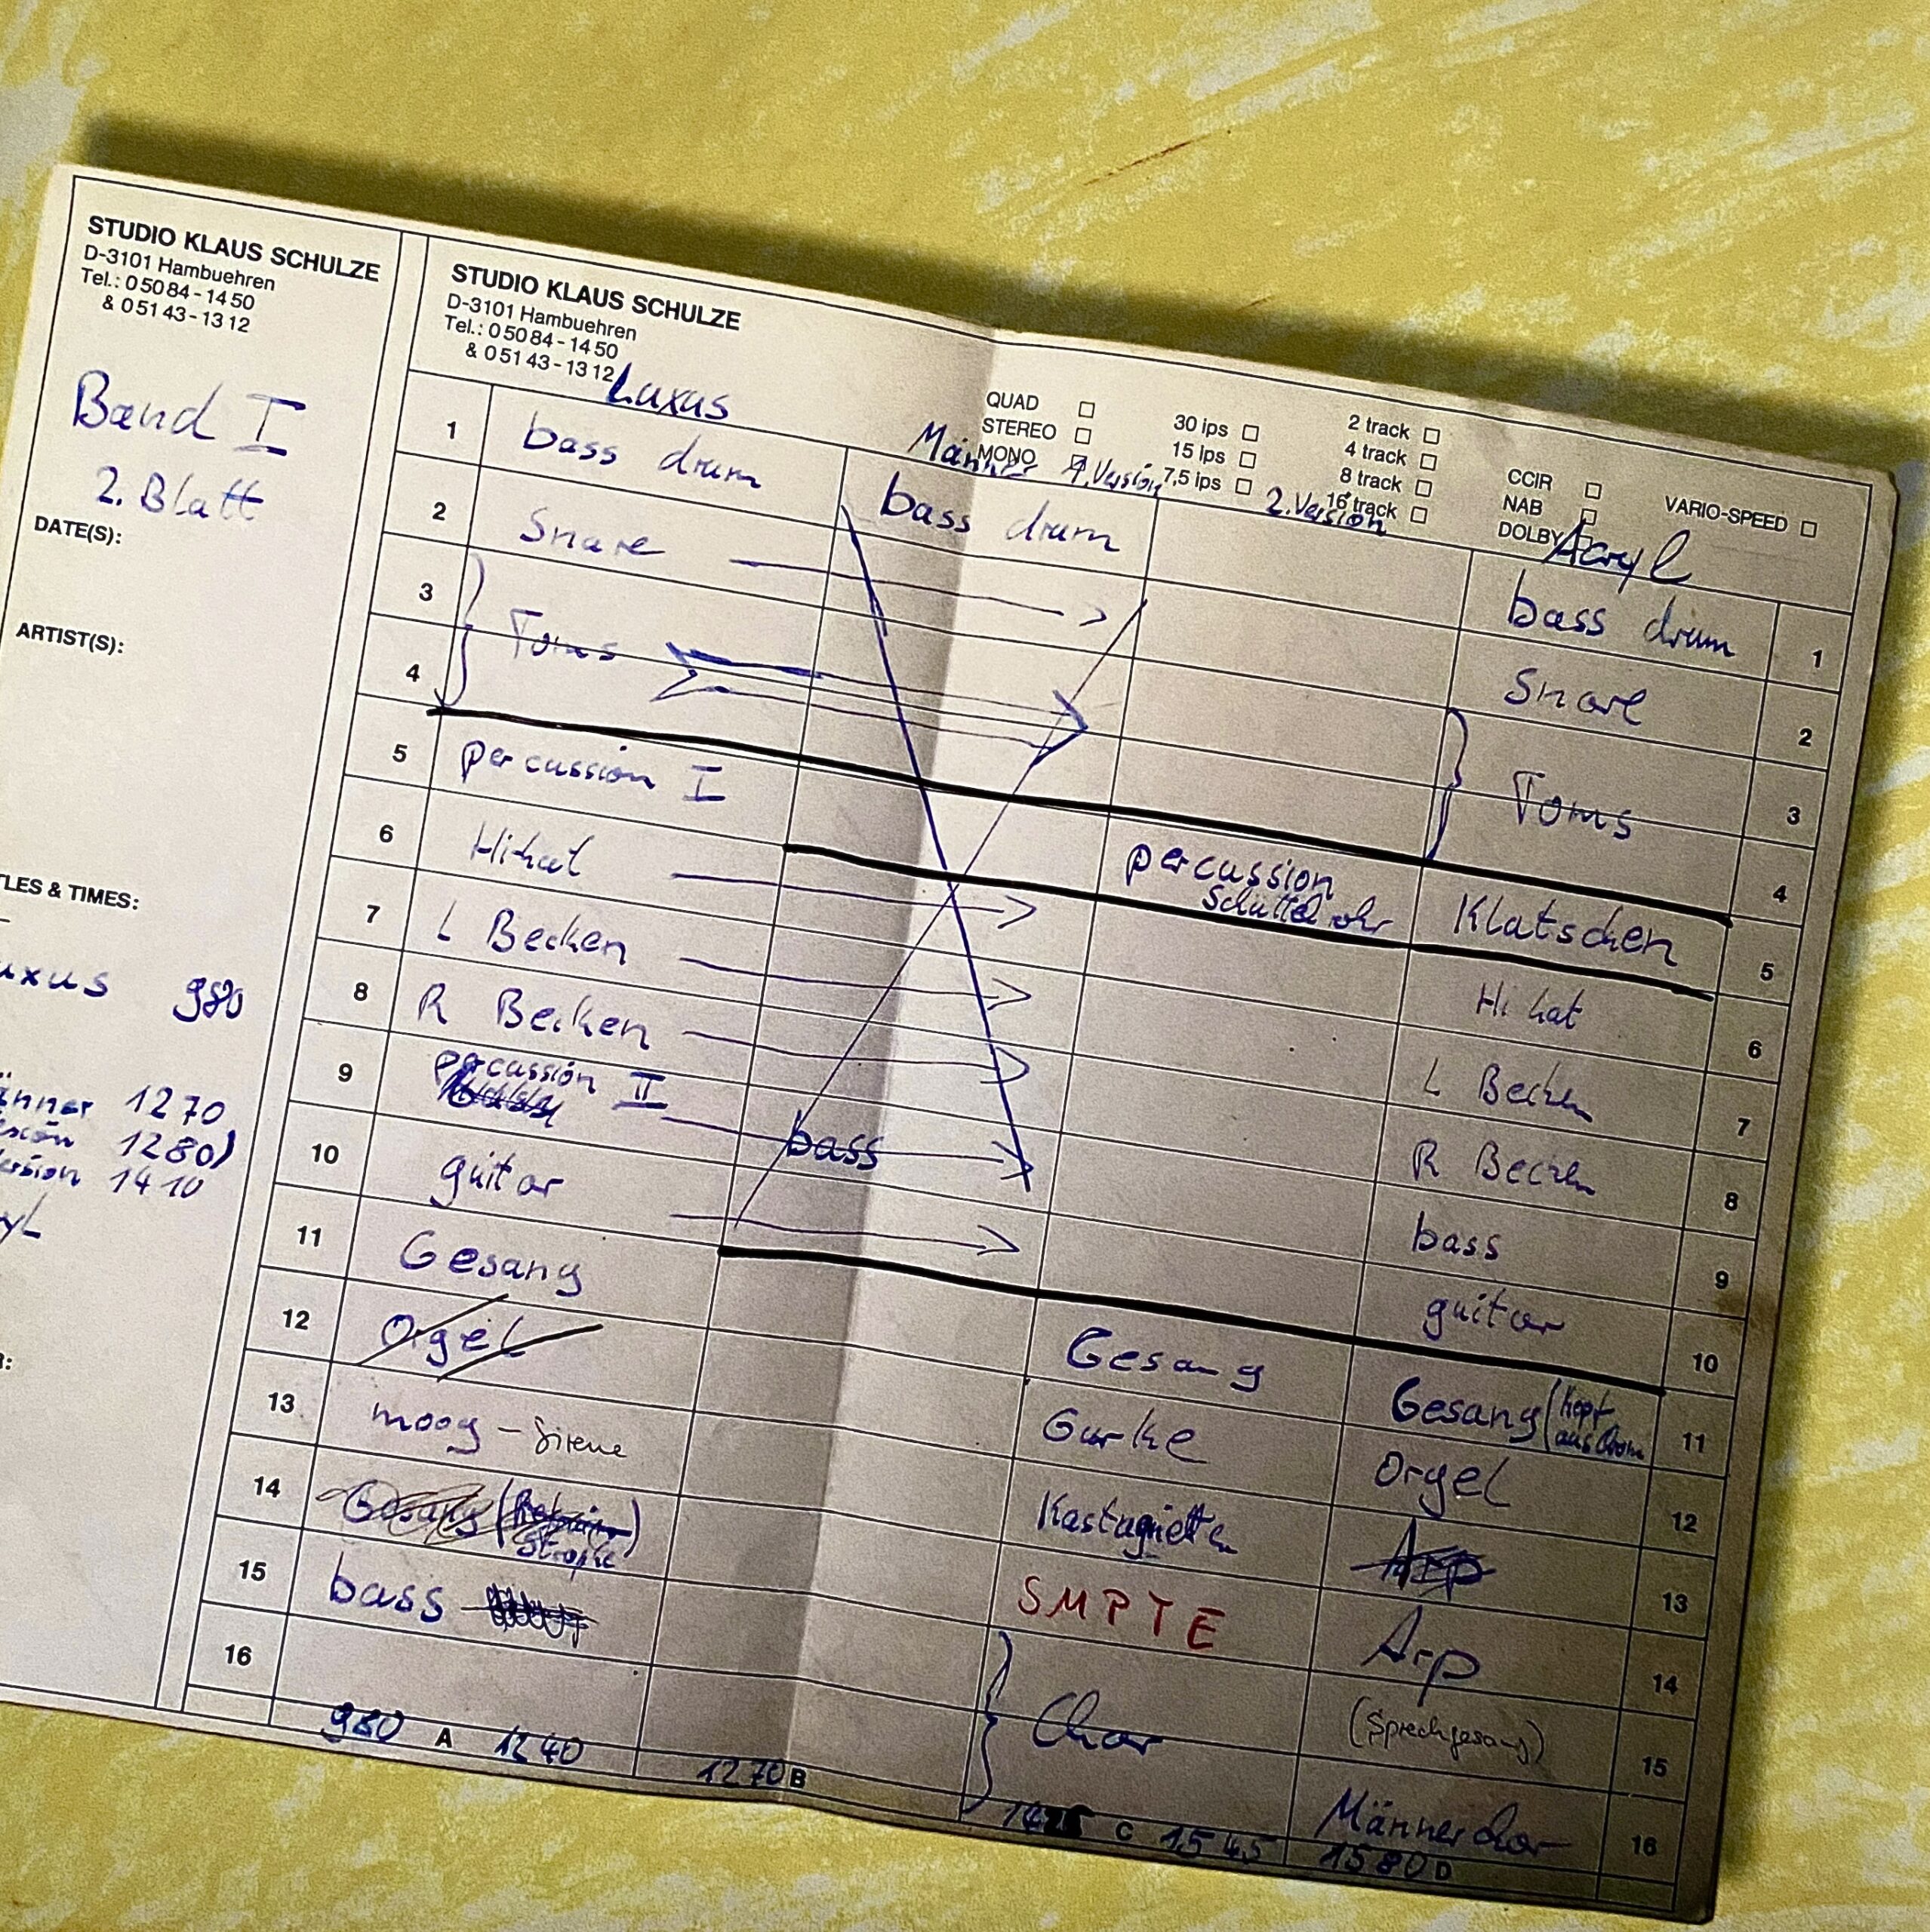 STUDIO KLAUS SCHULZE
D-3101 Hambuehren
Tel.: 05084-1450
& 05143-1312
Band I
2. Blatt
DATE(S):
ARTIST(S):
TLES & TIMES:
uxus 980
änner 1270
1280)
ersion 1410
yl
STUDIO KLAUS SCHULZE
D-3101 Hambuehren
Tel.: 05084-1450
& 05143-1312
QUAD
STEREO
MONO
30 ips
15 ips
7,5 ips
2 track
4 track
8 track
16 track
CCIR
NAB
DOLBY
VARIO-SPEED
Luxus
Männer 1. Version
2. Version
Acryl
1 bass drum bass drum bass drum 1
2 Snare Snare 2
3 Toms Toms 3
4 4
5 percussion I percussion Schüttelrohr Klatschen 5
6 Hihat Hi hat 6
7 L Becken L Becken 7
8 R Becken R Becken 8
9 percussion II bass bass 9
10 guitar guitar 10
11 Gesang Gesang Gesang (Kopf aus Chrom 11
12 Orgel Gurke Orgel 12
13 moog - Sirene Kastagnetten Arp 13
14 Gesang (Refrain Strophe) SMPTE Arp 14
15 bass Chor (Sprechgesang) 15
16 Männerchor 16
980 A 1240 1270 B C 1545 1580 D